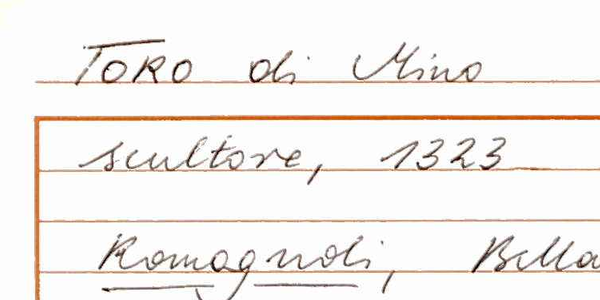 TORO di Mino
scultore, 1323
Romagnoli, Bella